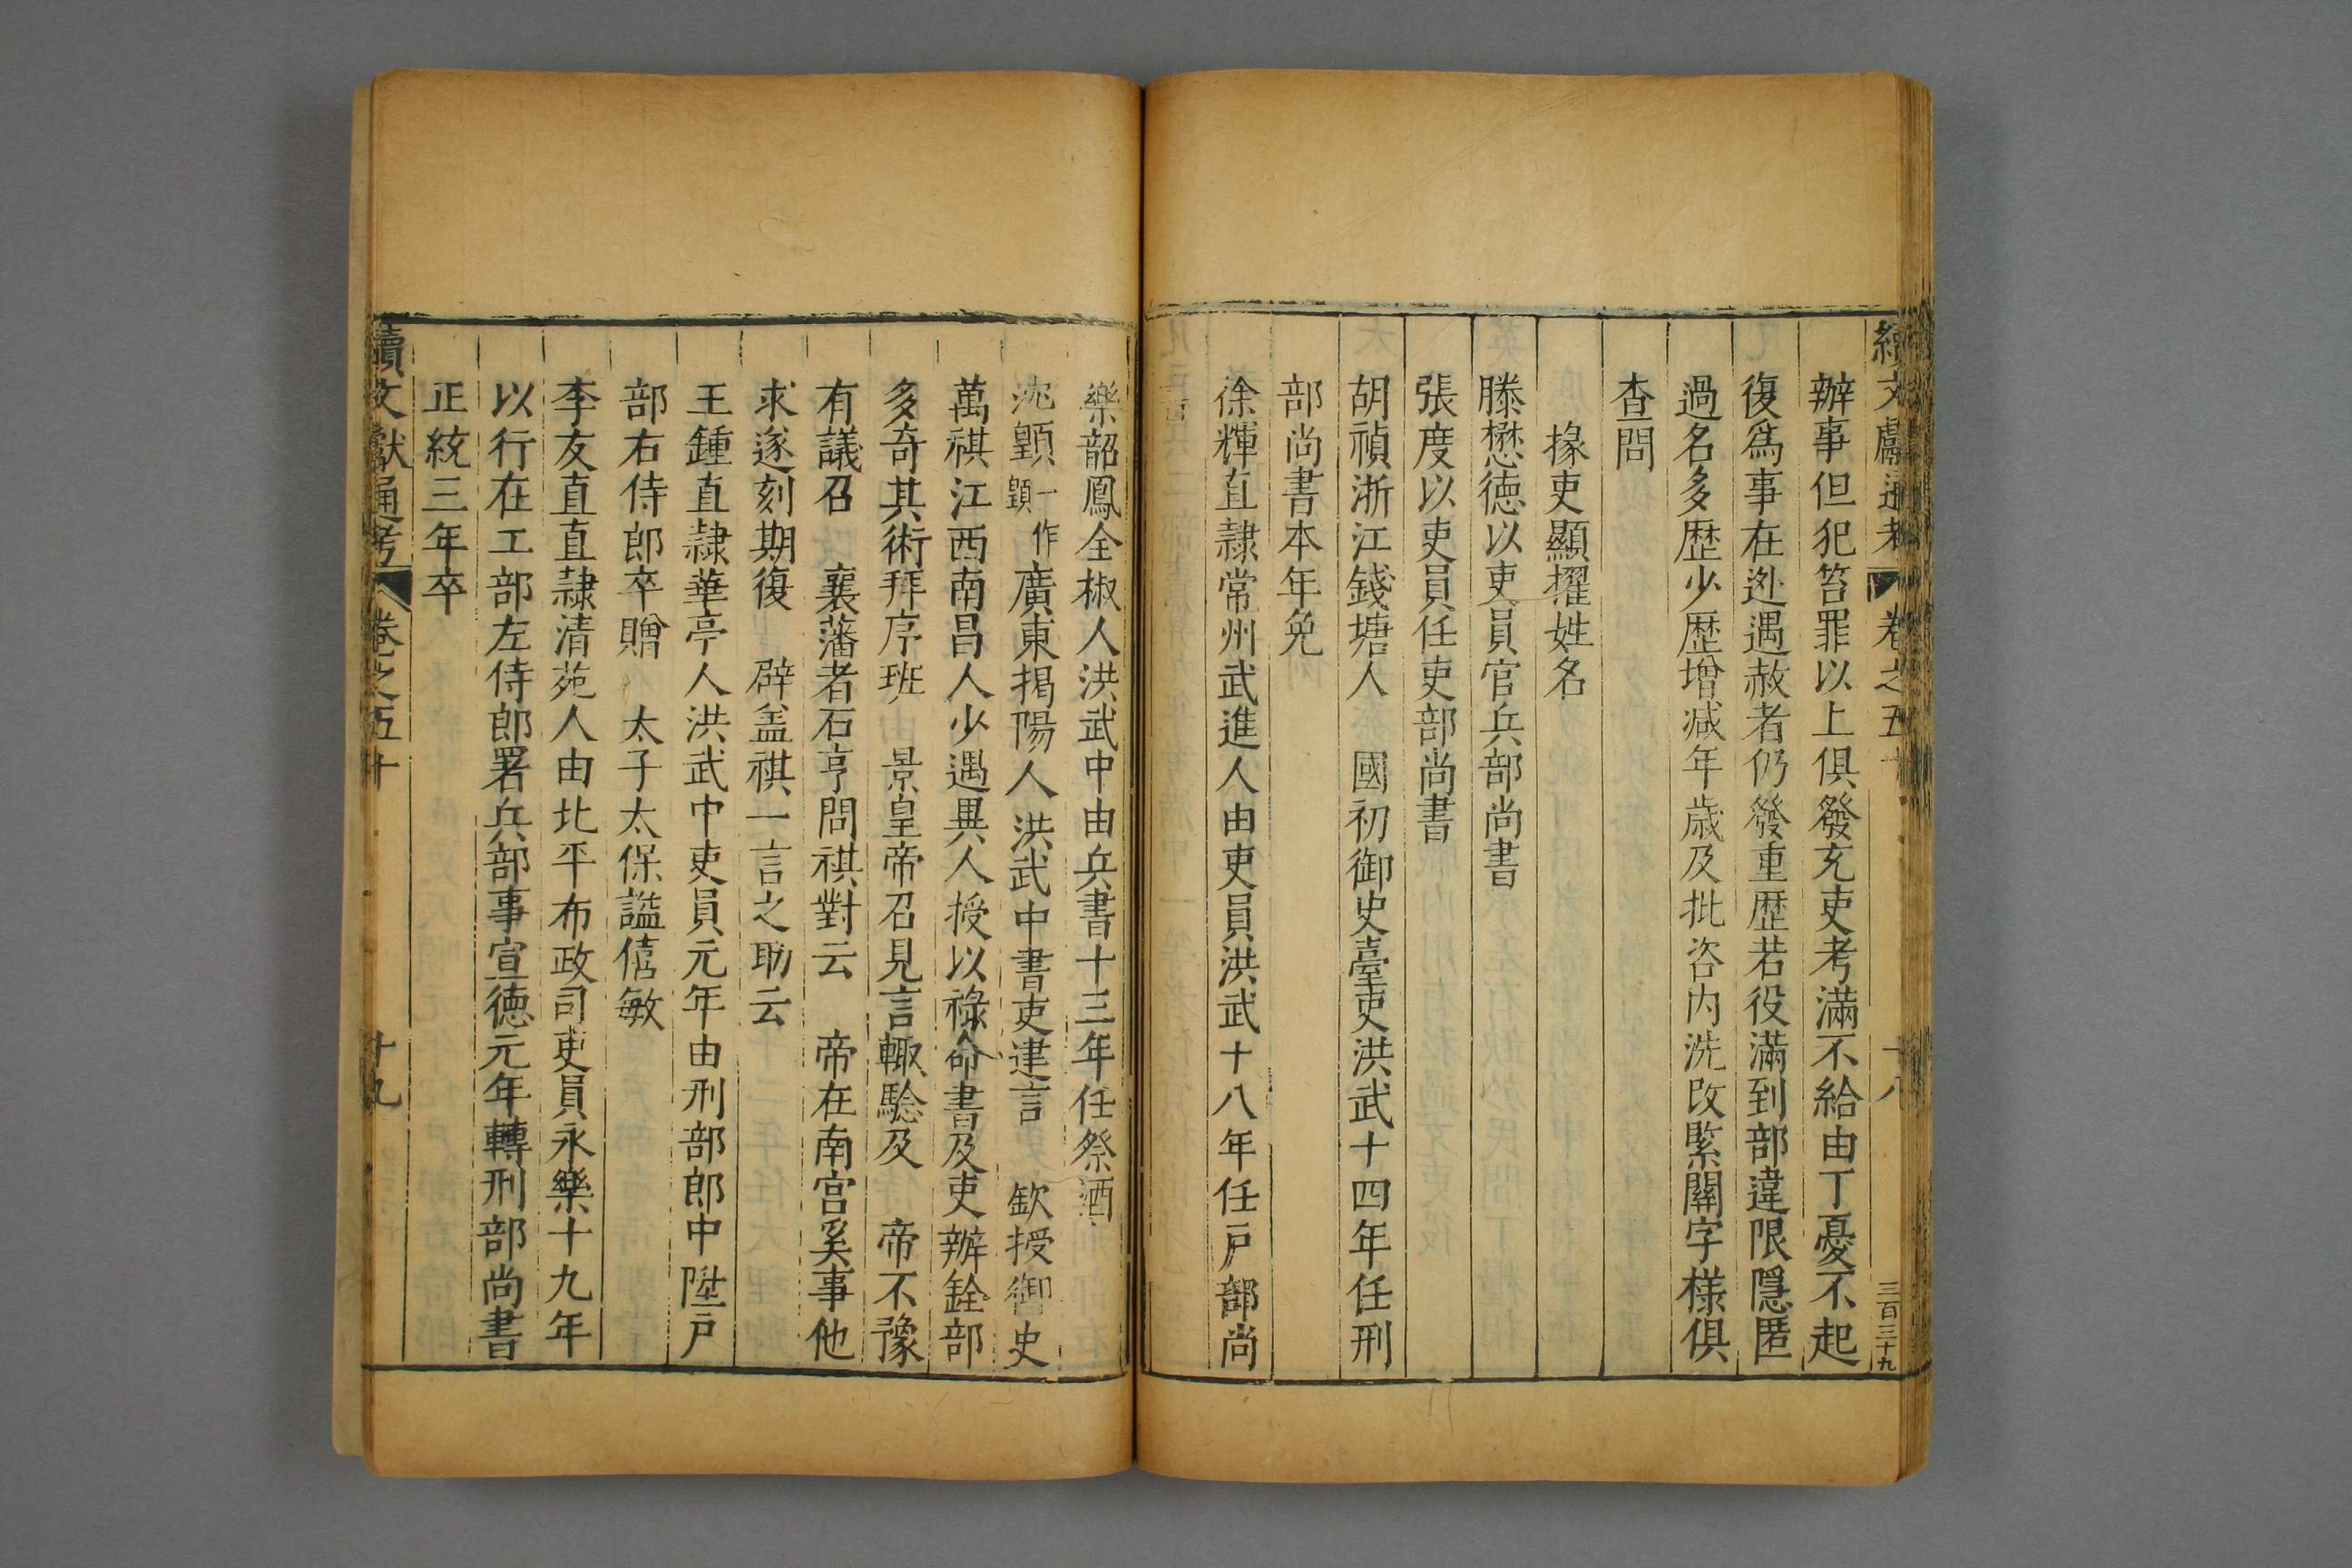 續文獻通考 卷之五十 十八 三百三十九
辦事但犯笞罪以上俱發充吏考滿不給由丁憂不起
復爲事在迯遇赦者仍發重歴若役滿到部違限隱匿
過名多歴少歴增减年歳及批咨内洗改緊關字様俱
查問
掾吏顯擢姓名
滕懋德以吏員官兵部尚書
張度以吏員任吏部尚書
胡禎浙江錢塘人 國初御史臺吏洪武十四年任刑
部尚書本年免
徐輝直隷常州武進人由吏員洪武十八年任戸部尚
書
樂韶鳳全椒人洪武中由兵書十三年任祭酒
沈顗一作顕廣東揭陽人洪武中書吏建言 欽授御史
萬祺江西南昌人少遇異人授以祿命書及吏辦銓部
多奇其術拜序班 景皇帝召見言輙驗及 帝不豫
有議召 襄藩者石亨問祺對云 帝在南宫奚事他
求遂刻期復 辟盖祺一言之助云
王鍾直隷華亭人洪武中吏員元年由刑部郎中陞戸
部右侍郎卒贈 太子太保謚僖敏
李友直直隷清苑人由北平布政司吏員永樂十九年
以行在工部左侍郎署兵部事宣德元年轉刑部尚書
正統三年卒
續文獻通考 卷之五十 十九